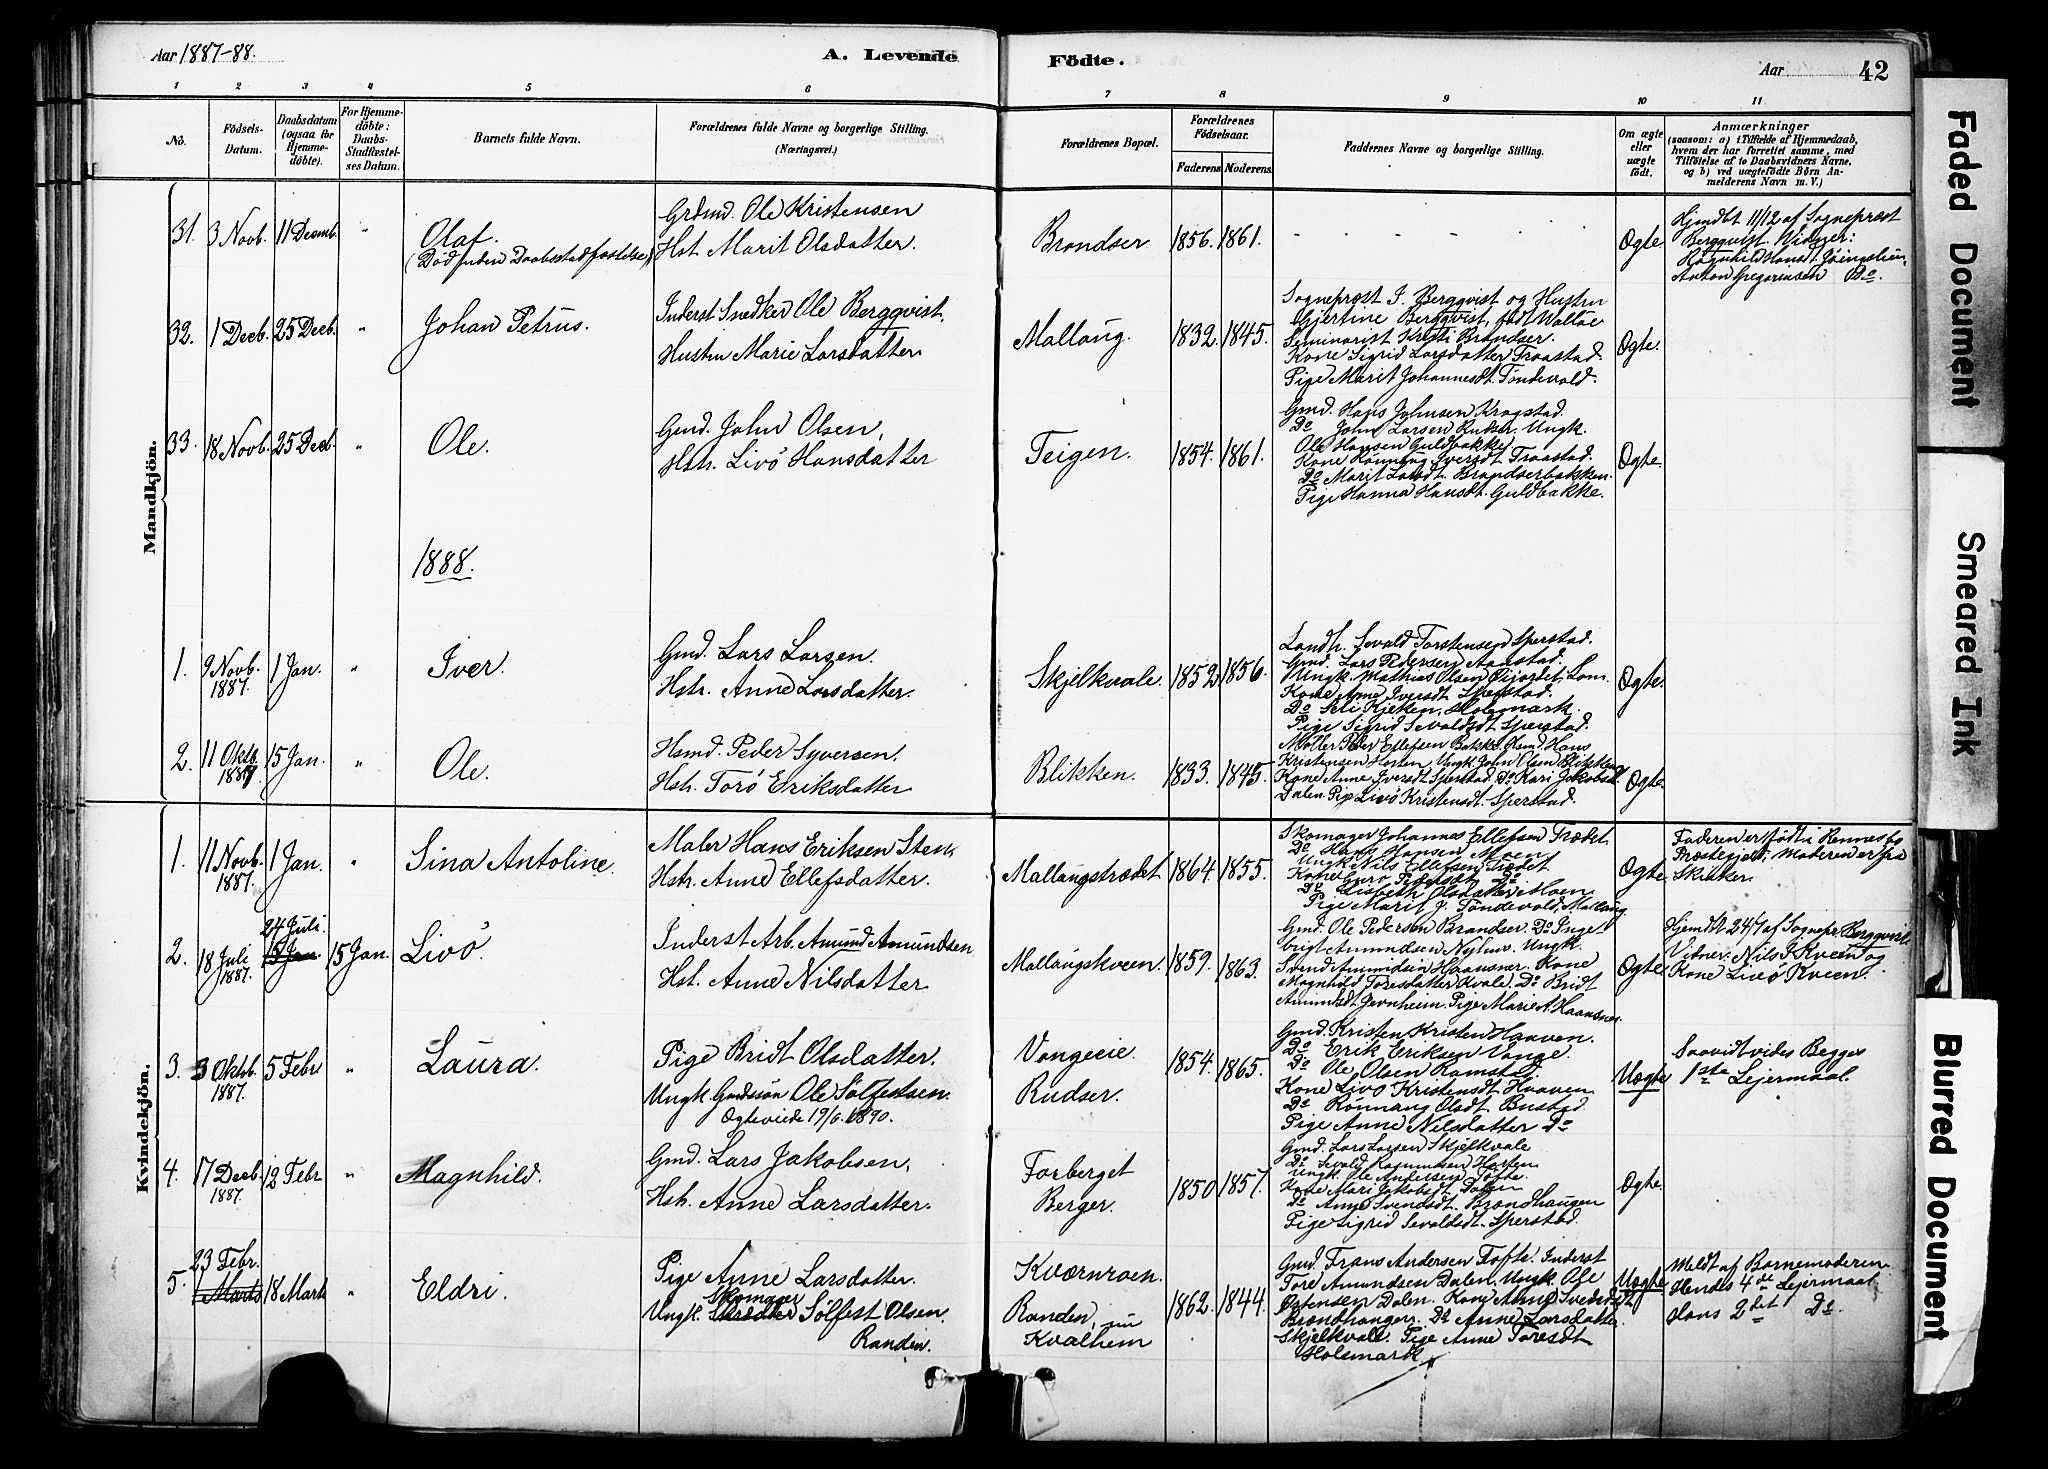 Aar 1887-88.
A. Levende
Födte.
Aar
42
1 2 3 4 5 6 7 8 9 10 11
No.
Födsels-Datum.
Daabsdatum (ogsaa for Hjemmedöbte).
For Hjemmedöbte: Daabs-Stadfæstelses Datum.
Barnets fulde Navn.
Forældrenes fulde Navne og borgerlige Stilling. (Næringsvei.)
Forældrenes Bopæl.
Forældrenes Födselsaar.
Faderens Moderens
Faddernes Navne og borgerlige Stilling.
Om ægte eller uægte födt.
Anmærkninger
(saasom: a) i Tilfælde af Hjemmedaab, hvem der har forrettet samme, med Tilföielse af to Daabsvidners Navne. og b) ved uægtefödte Börn Anmelderens Navn m. V.)
Mandkjön.
31. 3 Novb. 11 Decmb. "
Olaf.
(Död inden Daabsstadfæstelse)
Grdmd. Ole Kristensen
Hst. Marit Olsdatter.
Brandser 1856. 1861.
Ægte.
Hjmdbt 11/12 af Sognepræst
Bergqvist. Vidner:
Anton Gregoriusen Do.
32. 1 Decb. 25 Decb. "
Johan Petrus.
Inderst Snedker Ole Bergqvist.
Hustru Marie Larsdatter
Mallang. 1832. 1845.
Sognepræst J. Bergqvist og Hustru
Gjertine Bergqvist, født Walløe
Seminarist Kristi Brandser.
Kone Sigrid Larsdatter Traastad.
Pige Marit Johannesdt. Töndevold.
Ægte.
33. 18 Novb. 25 Decb. "
Ole.
Gmd. John Olsen,
Hstr. Livö Hansdatter
Teigen. 1854. 1861.
Gmd. Hans Johnsen Krogstad.
Do John Larsen Rudser. Ungk.
Ole Hansen Guldbakke
Kone Rönnaug Iversdt Traastad.
Do Marit Larsdt. Brandserbakken.
Pige Hanna Hansdt. Guldbakke.
Ægte.
1888.
1. 9 Novb. 1887. 1 Jan. "
Iver.
Gmd. Lars Larsen.
Hstr. Anne Larsdatter.
Skjelkvale. 1852 1856.
Landh. Sevald Torstensen Sperstad.
Gmd. Lars Pedersen Aaastad.
Ungk. Mathias Olsen Gjordet, Lom.
Kone Anne Iversdt Sperstad.
Do Siri Kjeken, Holsmark.
Pige Sigrid Sevaldsdt Sperstad.
Ægte.
2. 11 Oktb. 1887 15 Jan. "
Ole.
Hsmd. Peder Syversen.
Hstr. Torö Eriksdatter
Blikken. 1833. 1845.
Möller Peder Ellefsen Bakke. Hsmd. Hans
Kristensen Horten Ungk. John Olsen Blikken
Kone Anne Iversdt Sperstad. Do Kari Jakobsdt
Dalen. Pige Livö Kristensdt. Sperstad.
Ægte.
Kvindekjön.
1. 11 Novb. 1887. 1 Jan. "
Sina Antoline.
Maler Hans Eriksen Sten,
Hstr. Anne Ellefsdatter.
Mallangstrædet 1864. 1855.
Skomager Johannes Ellefsen Trædet.
Do Hans Hansen Moen
Ungk. Nils Ellefsen Trædet
Do Lisbeth Olsdatter Moen
Pige Marit J. Töndevold, Mallang.
Ægte
Faderen er född i Rennebo
Præstegjeld; Moderen er fra
Skiaker.
2. 18 Juli 1887. 24 Juli. 15 Jan. 15 Jan.
Livö
Inderst Arb. Amund Amundsen
Hst. Anne Nilsdatter
Mallangskveen. 1859. 1863.
Gmd. Ole Pedersen Brandser. Do Inge-
brigt Amundsen Nyhus. Ungk.
Svend Amundsen Haansner. Kone
Magnhild Toresdatter Kvale. Do Bridt
Amundsdt Jevnheim. Pige Marie A. Haansner.
Ægte
Hjemdt 24/7 af Sognepr. Bergqvist.
Vidner: Nils J. Kveen og
Kone Livö Kveen.
3. 3 Oktb. 1887. 5 Febr "
Laura.
Pige Bridt Olsdatter.
Ungk. Gmdssön Ole Sölfestsen.
Ægteviede 19/6. 1890.
Vangeeie
Rudser.
1854. 1865.
Gmd. Kristen Kristen Haaven.
Do Erik Eriksen Vange.
Do Ole Olsen Ramstad.
Kone Livö Kristensdt Haaven
Do Rönnaug Olsdt Bustad.
Pige Anne Nilsdatter Do
Uægte
Saavidt vides Begges
1ste Lejermaal.
4. 17 Decb. 1887. 12 Febr "
Magnhild.
Gmd. Lars Jakobsen,
Hstr. Anne Larsdatter.
Forberget
Berger.
1850 1857.
Gmd. Lars Larsen Skjelkvale
Do Sevald Rasmussen Horten
Ungk. Ole Andersen Tofte.
Kone Mari Jakobsdt. Dalen
Do Anne Svendsdt. Brandhaugen
Pige Sigrid Sevaldsdt. Sperstad.
Ægte.
5. 23 Febr. 1 Marts 18 Marts "
Eldri.
Pige Anne Larsdatter.
Skomager
Ungk. Skrædder Sölfest Olsen,
Randen.
Kværnroen.
Randen, nu
Kvalhem
1862. 1844.
Gmd. Frans Andersen Tofte. Inderst
Tore Amundsen Dalen. Ungk. Ole
Östensen Dalen. Kone Anne Svendsdt
Brandhaugen. Do Anne Larsdatter
Skjelkvall. Pige Anne Toresdt
Holsmark
Uægte
Meldt af Barnemoderen.
Hendes 4de Lejermaal
Hans 2det Do.
Faded Document
Smeared Ink
Blurred Document